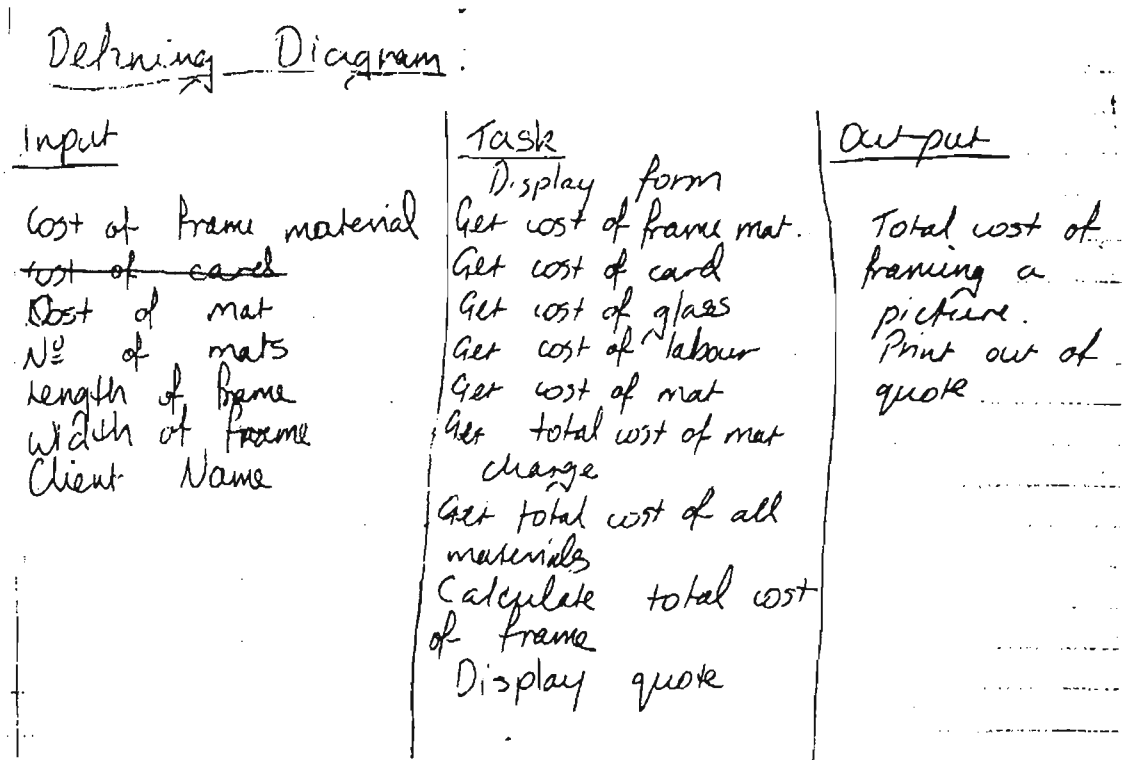 Defining Diagram:
Input
Cost of frame material
cost of card
Cost of mat
Nº of mats
Length of frame
Width of frame
Client Name
Task
Display form
Get cost of frame mat.
Get cost of card
Get cost of glass
Get cost of labour
Get cost of mat
Get total cost of mat
charge
Get total cost of all
materials
Calculate total cost
of frame
Display quote
Output
Total cost of
framing a
picture.
Print out of
quote